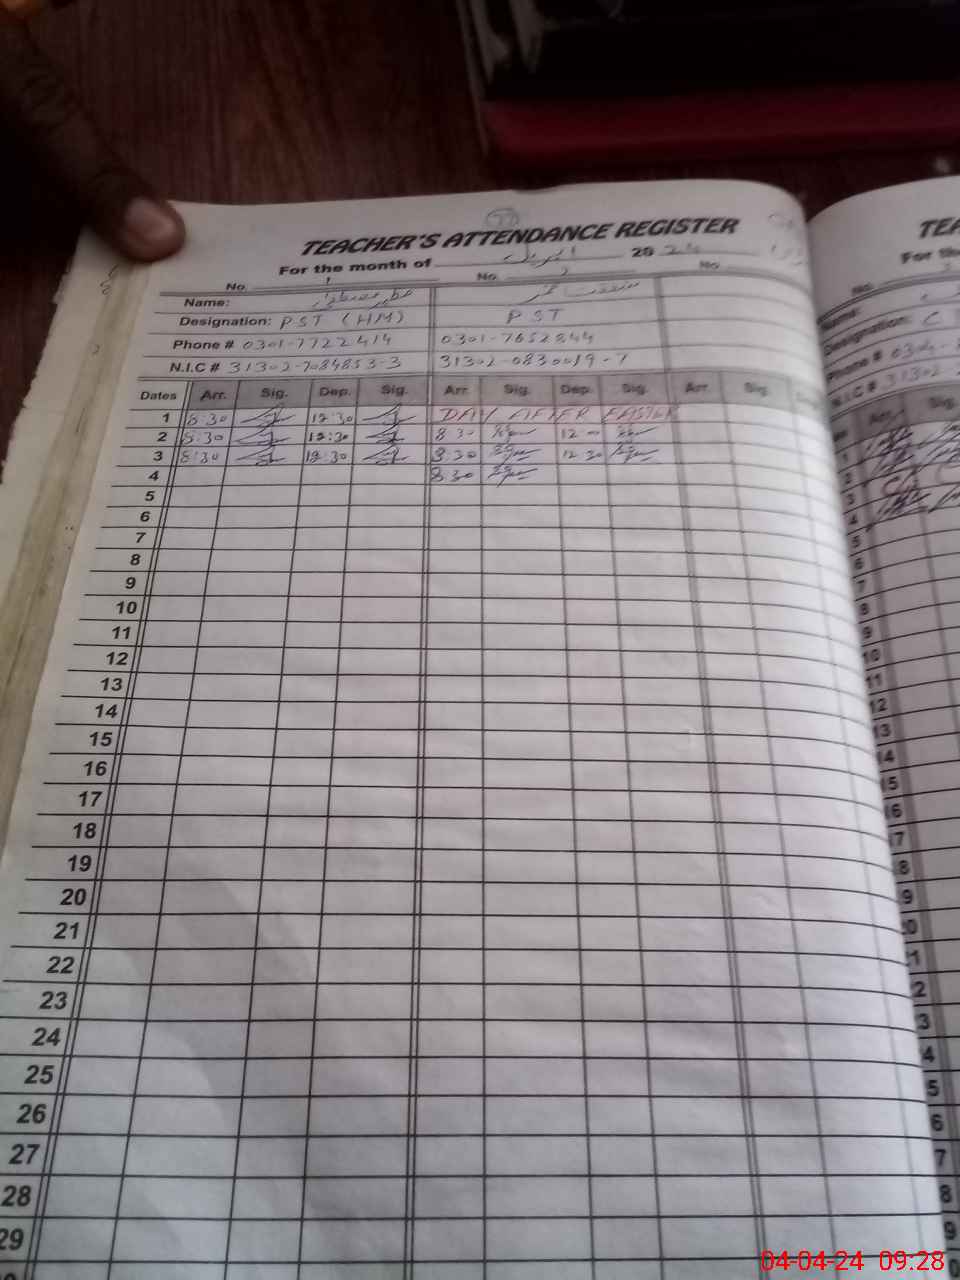 77
TEACHER'S ATTENDANCE REGISTER
For the month of اپریل 2024
No. 1 No. 2 No.
Name:
Designation: PST (HM) PST
Phone # 0301-7722414 0301-7652844
N.I.C # 31302-7084853-3 31302-0830019-7
Dates Arr. Sig. Dep. Sig. Arr. Sig. Dep. Sig. Arr. Sig.
1 8:30 12:30 DAY AFTER EASTER
2 8:30 12:30 8:30 12
3 8:30 12:30 8:30 12:30
4 8:30
5
6
7
8
9
10
11
12
13
14
15
16
17
18
19
20
21
22
23
24
25
26
27
28
29
TEA
For the
No.
Name:
Designation: C
Phone # 0304
N.I.C # 31302
Arr. Sig.
1
2
3
4
5
6
7
8
9
10
11
12
13
14
15
16
17
18
9
0
1
2
3
4
5
6
7
8
9
04-04-24 09:28